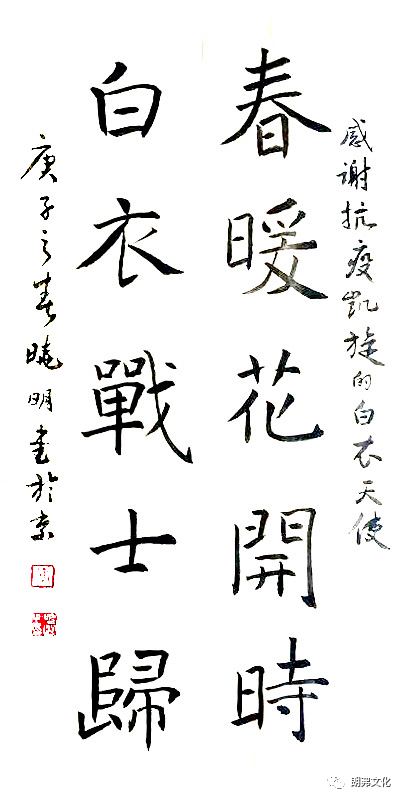 感谢抗疫凯旋的白衣天使
春暖花開時
白衣戰士歸
庚子之春曉明书於京
朗弗文化